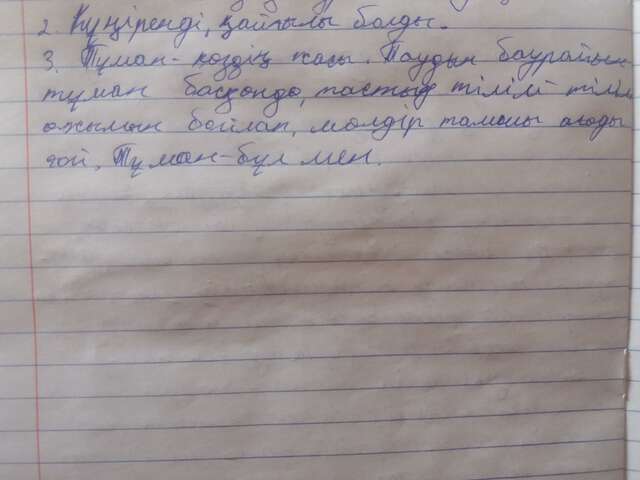 2. Күңіренді, қайғылы болды.
3. Тұман - көздің жасы. Таудың баурайын
тұман басқанда, тастың тілім тілім
ажымын бойлап, мөлдір тамшы ағады
ғой, Тұман - бұл мен.